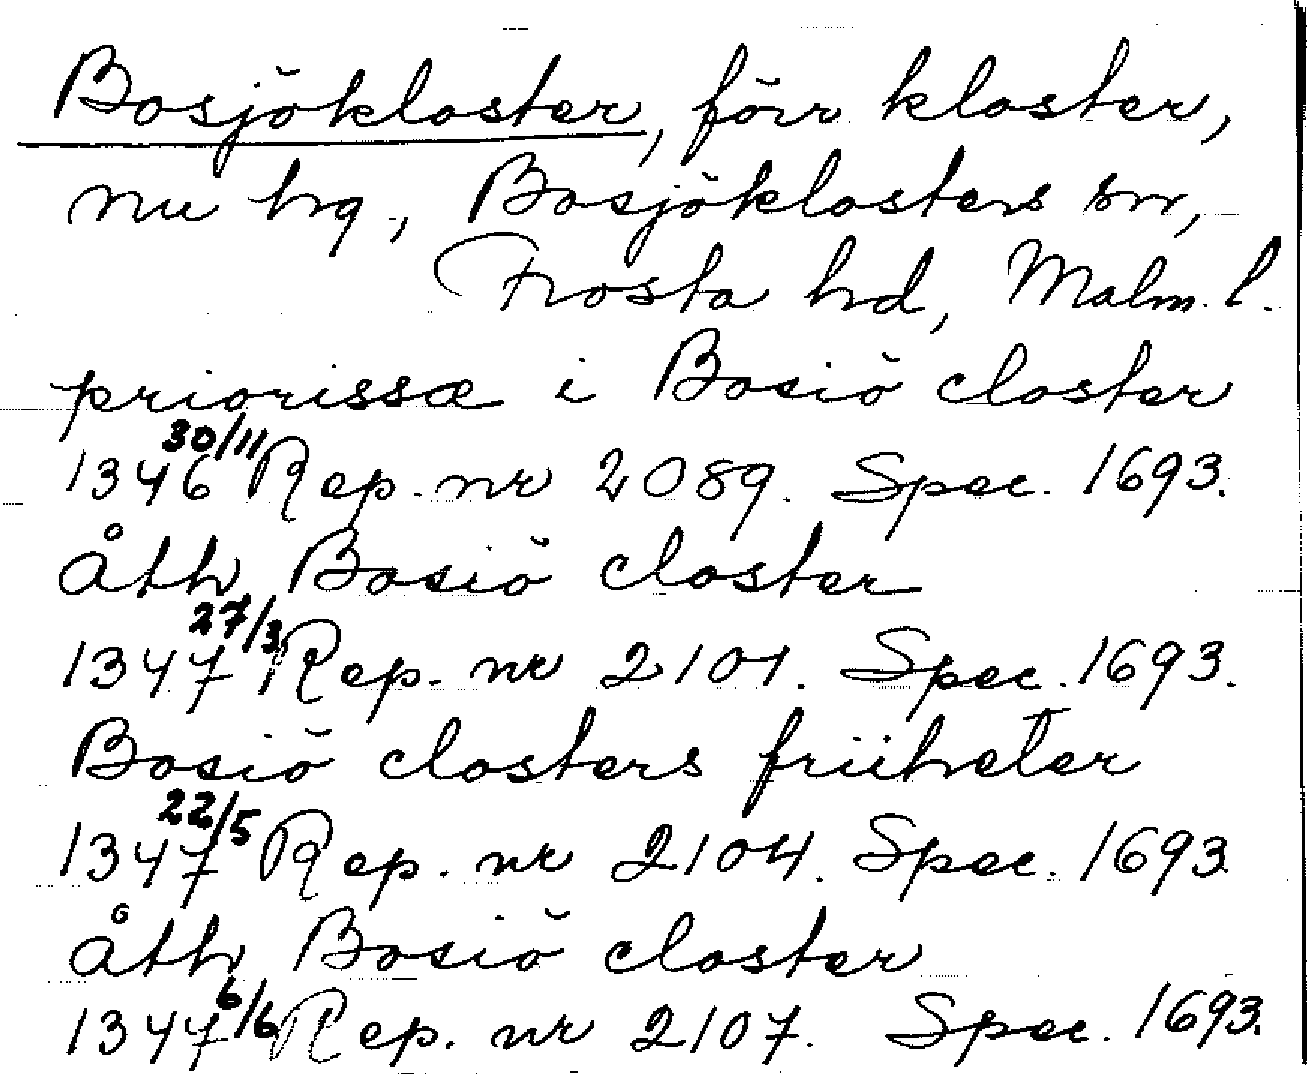 Bosjökloster, förr kloster,
nu hg, Bosjöklosters sn,
Frosta hd, Malm. l.
priorissæ i Bosiö closter
1346 30/11 Rep. nr 2089. Spec. 1693.
åth Bosiö closter
1347 27/3 Rep. nr 2101. Spec. 1693.
Bosiö closters friiheter
1347 22/5 Rep. nr 2104. Spec. 1693
åth Bosiö closter
1347 6/6 Rep. nr 2107. Spec. 1693.